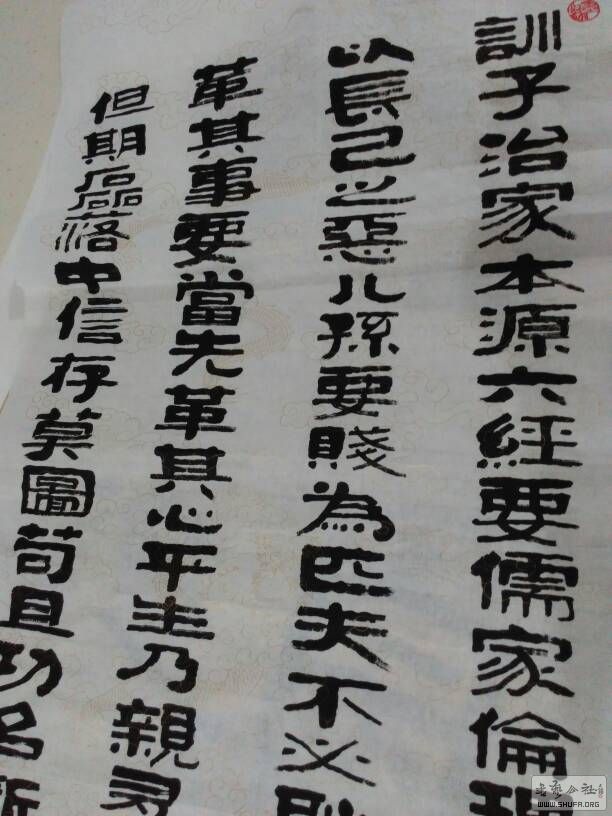 訓子治家本源六經要儒家倫理
以長己之惡儿孫要賤為匹夫不必耻
革其事要當先革其心平生乃親灵
但期磊落中信存莫圖苟且功名所
WWW.SHUFA.ORG